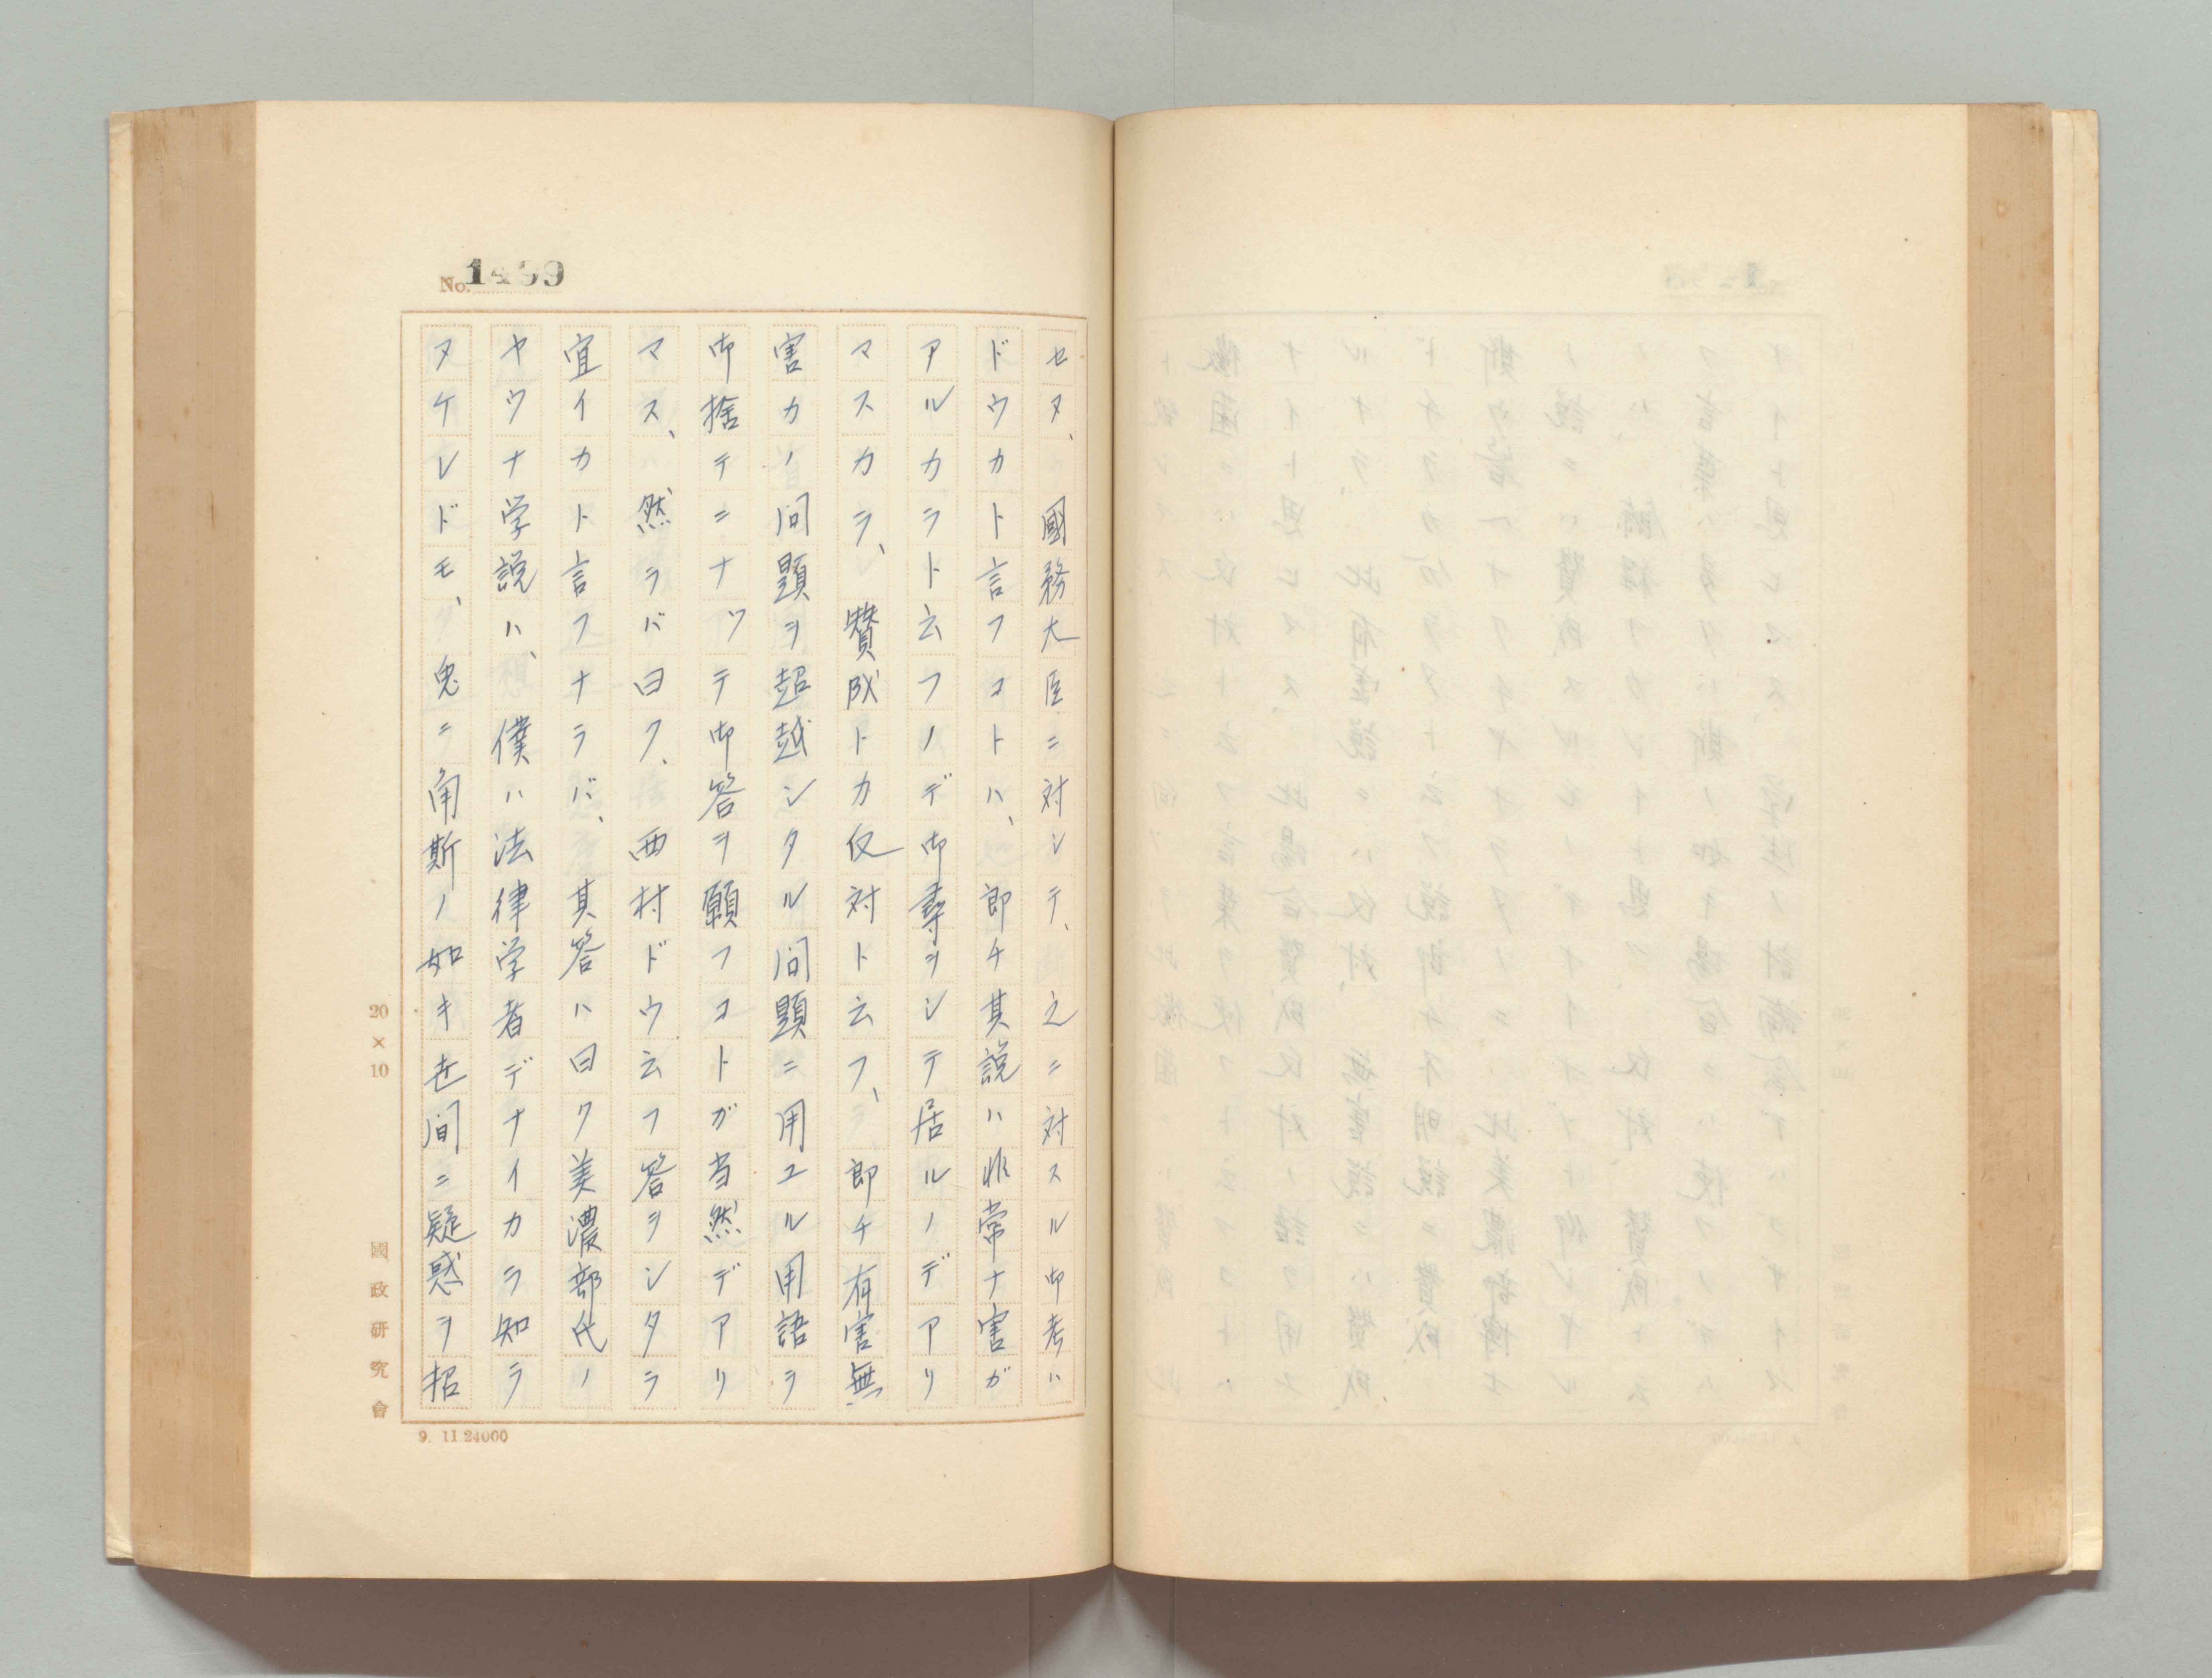 No. 1499
セヌ、國務大臣ニ対シテ、之ニ対スル御考ハ
ドウカト言フコトハ、郎チ其説ハ非常ナ害ガ
アルカラト云フノデ御尋ヲシテ居ルノデアリ
マスカラ、賛成トカ反対ト云フ、郎チ有害無
害カノ問題ヲ超越シタル問題ニ用ユル用語ヲ
御捨テニナッテ御答ヲ願フコトガ当然デアリ
マス、然ラバ曰ク、西村ドウ云フ答ヲシタラ
宜イカト言フナラバ、其答ハ曰ク美濃部氏ノ
ヤウナ学説ハ、僕ハ法律学者デナイカラ知ラ
ヌケレドモ、兎ニ角斯ノ如キ世間ニ疑惑ヲ招
20×10
國政研究會
9. 11.24000